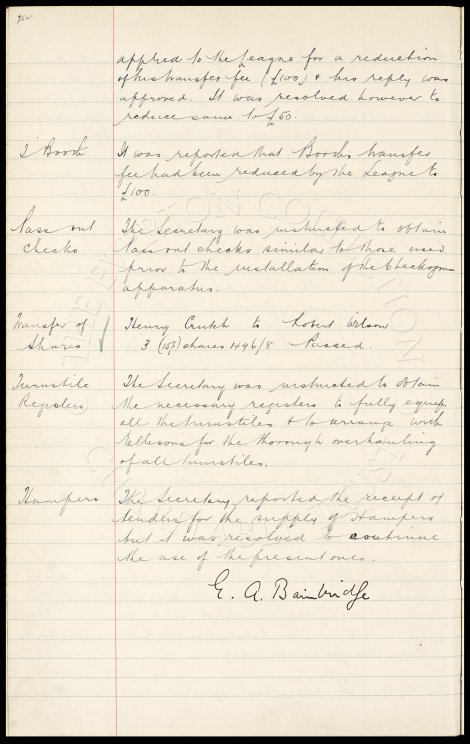 applied to the League for a reduction
of his transfer fee (£100) & his reply was
approved. It was resolved however to
reduce same to £50.
T Booth It was reported that Booths transfer
fee had been reduced by the League to
£100.
Pass out The Secretary was instructed to obtain
Checks Pass out checks similar to those used
prior to the installation of the
apparatus.
Transfer of Henry Crutch to Robert Wilson
Shares 3 (10/-) shares 1496/8 Passed.
Turnstile The Secretary was instructed to obtain
Registers the necessary registers to fully equip
all the turnstiles & to arrange with
for the thorough overhauling
of all turnstiles.
Hampers The Secretary reported the receipt of
tenders for the supply of Hampers
but it was resolved to continue
the use of the present ones.
E. A. Bainbridge
THE EVERTON COLLECTION